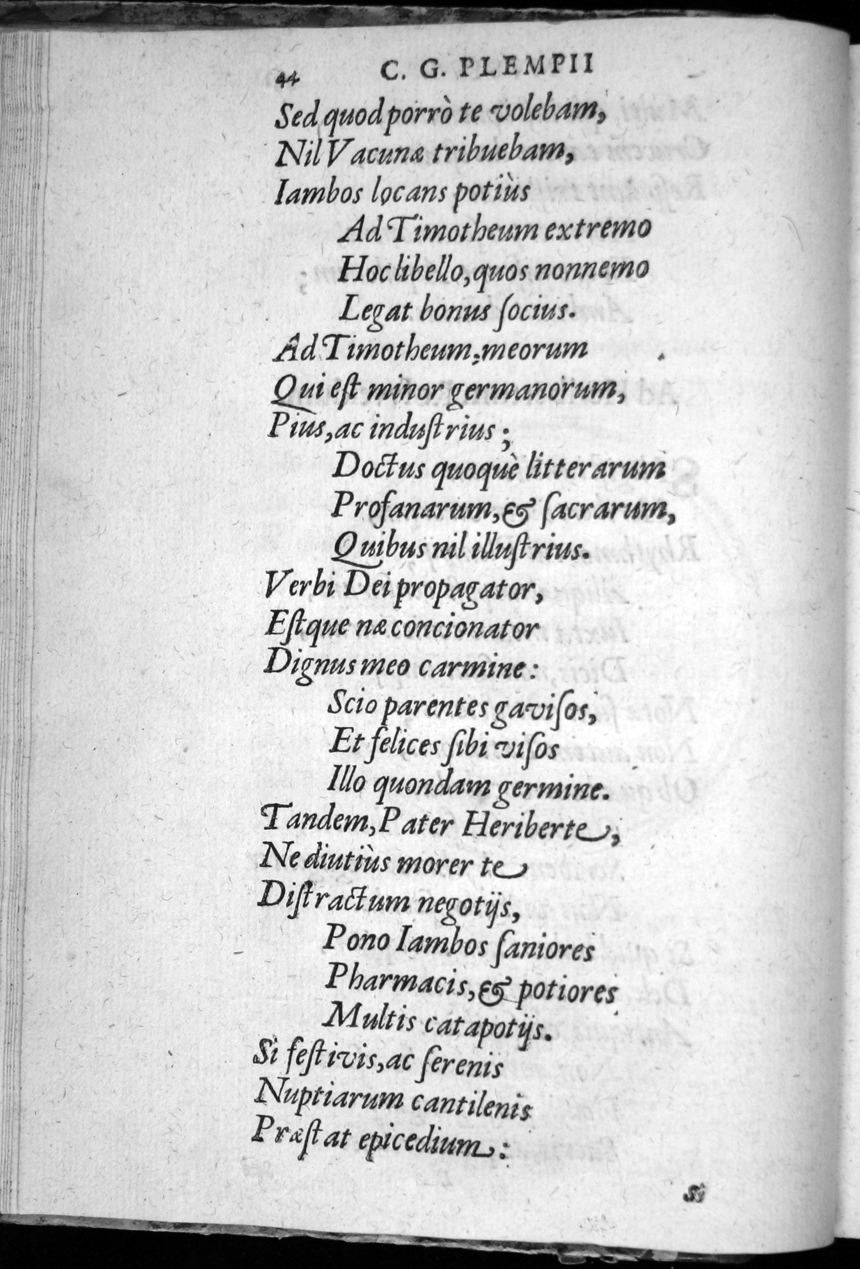 44 C. G. PLEMPII
Sed quod porrò te volebam,
Nil Vacunæ tribuebam,
Iambos locans potiùs
Ad Timotheum extremo
Hoc libello, quos nonnemo
Legat bonus ſocius.
Ad Timotheum; meorum
Qui eſt minor germanorum,
Pius, ac induſtrius;
Doctus quoquè litterarum
Profanarum, & ſacrarum,
Quibus nil illuſtrius.
Verbi Dei propagator,
Eſtque næ concionator
Dignus meo carmine:
Scio parentes gaviſos,
Et felices ſibi viſos
Illo quondam germine.
Tandem, Pater Heriberte,
Ne diutiùs morer te
Diſtractum negotijs,
Pono Iambos ſaniores
Pharmacis, & potiores
Multis catapotijs.
Si feſtivis, ac ſerenis
Nuptiarum cantilenis
Præſtat epicedium:
Si